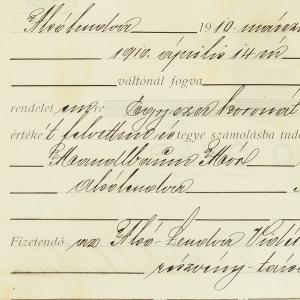 Alsólendva 1910 március
1910. április 14 én
váltónál fogva
rendelet emre Egyezer koronát
értéke't felvettem és tegye számolásba tudó
Mandlbaum Mór
Alsólendva
Fizetendő az Alsó-Lendva Vidéki
részvény-társ